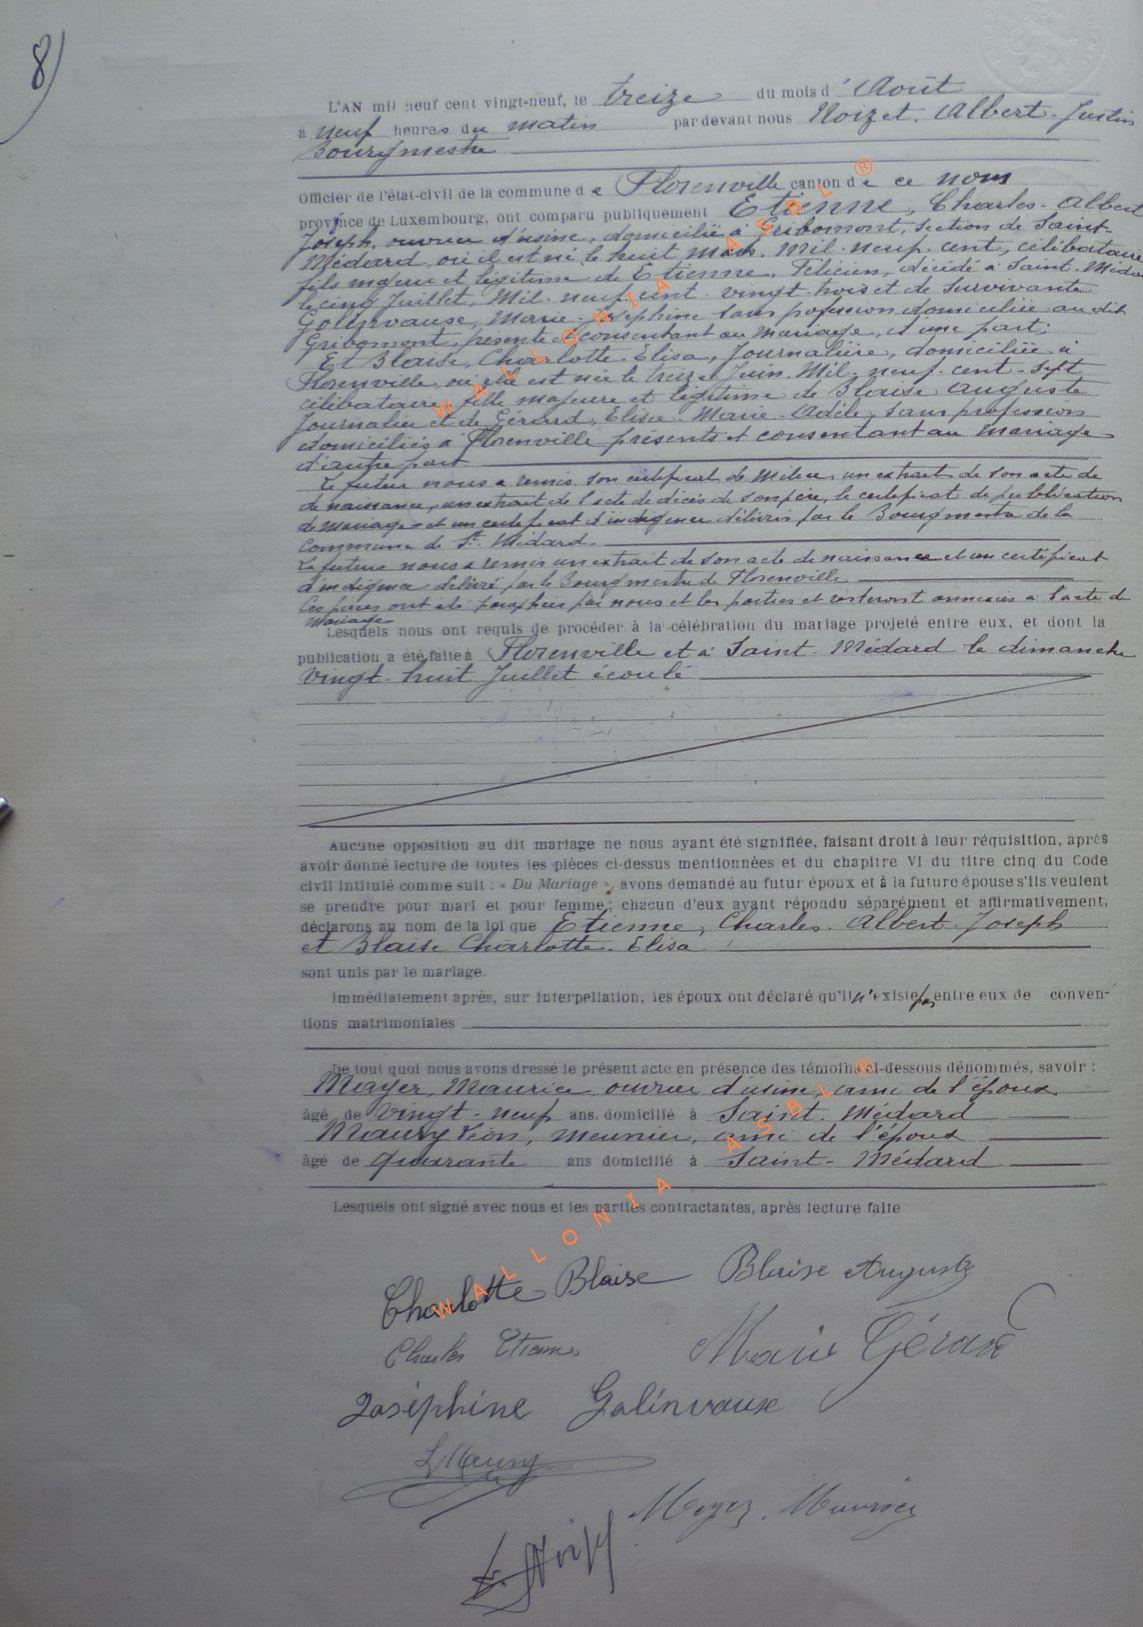 8)
L'AN mil neuf cent vingt-neuf, le treize du mois d'Août
à neuf heures du matin par devant nous Noizet, Albert-Justin
Bourgmestre
Officier de l'état-civil de la commune de Florenville canton de ce nom
province de Luxembourg, ont comparu publiquement Etienne, Charles-Albert
Joseph, ouvrier d'usine, domicilié à Gribomont, section de Saint-
Médard où il est né le huit mars Mil-neuf-cent, célibataire
fils majeur et légitime de Etienne, Félicien, décédé à Saint-Médard
le cinq Juillet, Mil-neuf-cent-vingt-trois et de Survivante
Golinvause, Marie-Joséphine sans profession domiciliée au dit
Gribomont, présente et consentant au mariage, d'une part;
Et Blaise, Charlotte-Elisa, Journalière, domiciliée à
Florenville où elle est née le treize Juin Mil-neuf-cent-sept
célibataire, fille majeure et légitime de Blaise Auguste
Journalier et de Gérard, Elisa-Marie-Adèle, sans profession
domiciliés à Florenville présents et consentant au mariage
d'autre part
Le futur nous a remis son certificat de Milice, un extrait de son acte de
de naissance, un extrait de l'acte de décès de son père, le certificat de publication
de mariage et un certificat d'indigence délivrés par le Bourgmestre de la
Commune de St. Médard.
La future nous a remis un extrait de son acte de naissance et un certificat
d'indigence délivré par le Bourgmestre de Florenville
Ces pièces ont été paraphées par nous et les parties et resteront annexées à l'acte de
mariage
Lesquels nous ont requis de procéder à la célébration du mariage projeté entre eux, et dont la
publication a été faite à Florenville et à Saint-Médard le dimanche
vingt-huit Juillet écoulé
Aucune opposition au dit mariage ne nous ayant été signifiée, faisant droit à leur réquisition, après
avoir donné lecture de toutes les pièces ci-dessus mentionnées et du chapitre VI du titre cinq du Code
civil intitulé comme suit : « Du Mariage », avons demandé au futur époux et à la future épouse s'ils veulent
se prendre pour mari et pour femme; chacun d'eux ayant répondu séparément et affirmativement,
déclarons au nom de la loi que Etienne, Charles-Albert-Joseph
et Blaise Charlotte-Elisa
sont unis par le mariage.
Immédiatement après, sur interpellation, les époux ont déclaré qu'il n'existe pas entre eux de conven-
tions matrimoniales
De tout quoi nous avons dressé le présent acte en présence des témoins ci-dessous dénommés, savoir :
Mayer, Maurice ouvrier d'usine, ami de l'époux
âgé de vingt-neuf ans, domicilié à Saint-Médard
Maury Léon, meunier, ami de l'époux
âgé de quarante ans domicilié à Saint-Médard
Lesquels ont signé avec nous et les parties contractantes, après lecture faite
Charlotte Blaise Blaise Auguste
Charles Etienne Marie Gérard
Joséphine Galinvaux
L Maury
Mayer. Maurice
A. Noizet
WALLONIA ASBL ®
WALLONIA ASBL ®